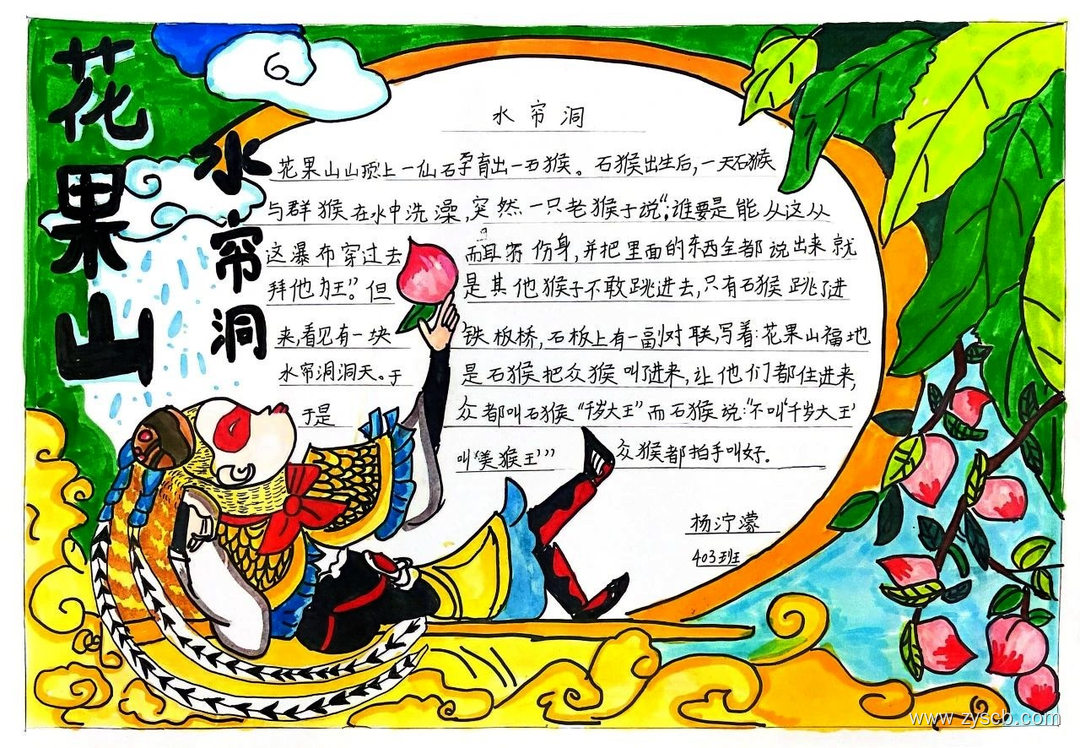 花果山
水帘洞
水帘洞
花果山山顶上一仙石孕育出一石猴。石猴出生后,一天石猴
与群猴在水中洗澡,突然一只老猴子说:“谁要是能从这从
这瀑布穿过去 而且不伤身,并把里面的东西全都说出来就
拜他为王”。但 是其他猴子不敢跳进去,只有石猴跳了进
来,看见有一块 铁板桥,石板上有一副对联,写着:花果山福地
水帘洞洞天。于 是石猴把众猴叫了进来,让他们都住进来,
于是 众都叫石猴“千岁大王”而石猴说:“不叫‘千岁大王’
叫‘美猴王’” 众猴都拍手叫好.
杨泞濛
403班
www.zyscb.com